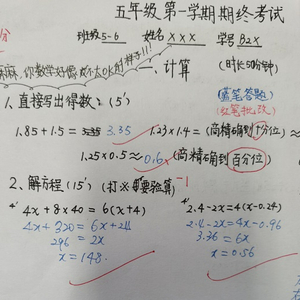 五年级第一学期期终考试
班级5-6 姓名 x x x 学号 B2x
麻麻,你数学好像
一、计算 (时长50分钟)
(蓝笔答题)
(红笔批改)
1、直接写出得数:(5′)
1.85+1.5= 3.35 1.23×1.4≈ (商精确到十分位)
1.25×0.5≈0.6x (商精确到百分位)
2、解方程(15′) (打※要验算) -1
4′ 4x+8×40=6(x+4) 4′ 2.4-2x=4(x-0.24)
4x+320=6x+24 2.4-2x=4x-0.96
296=2x 3.36=6x
x=148. x=0.56